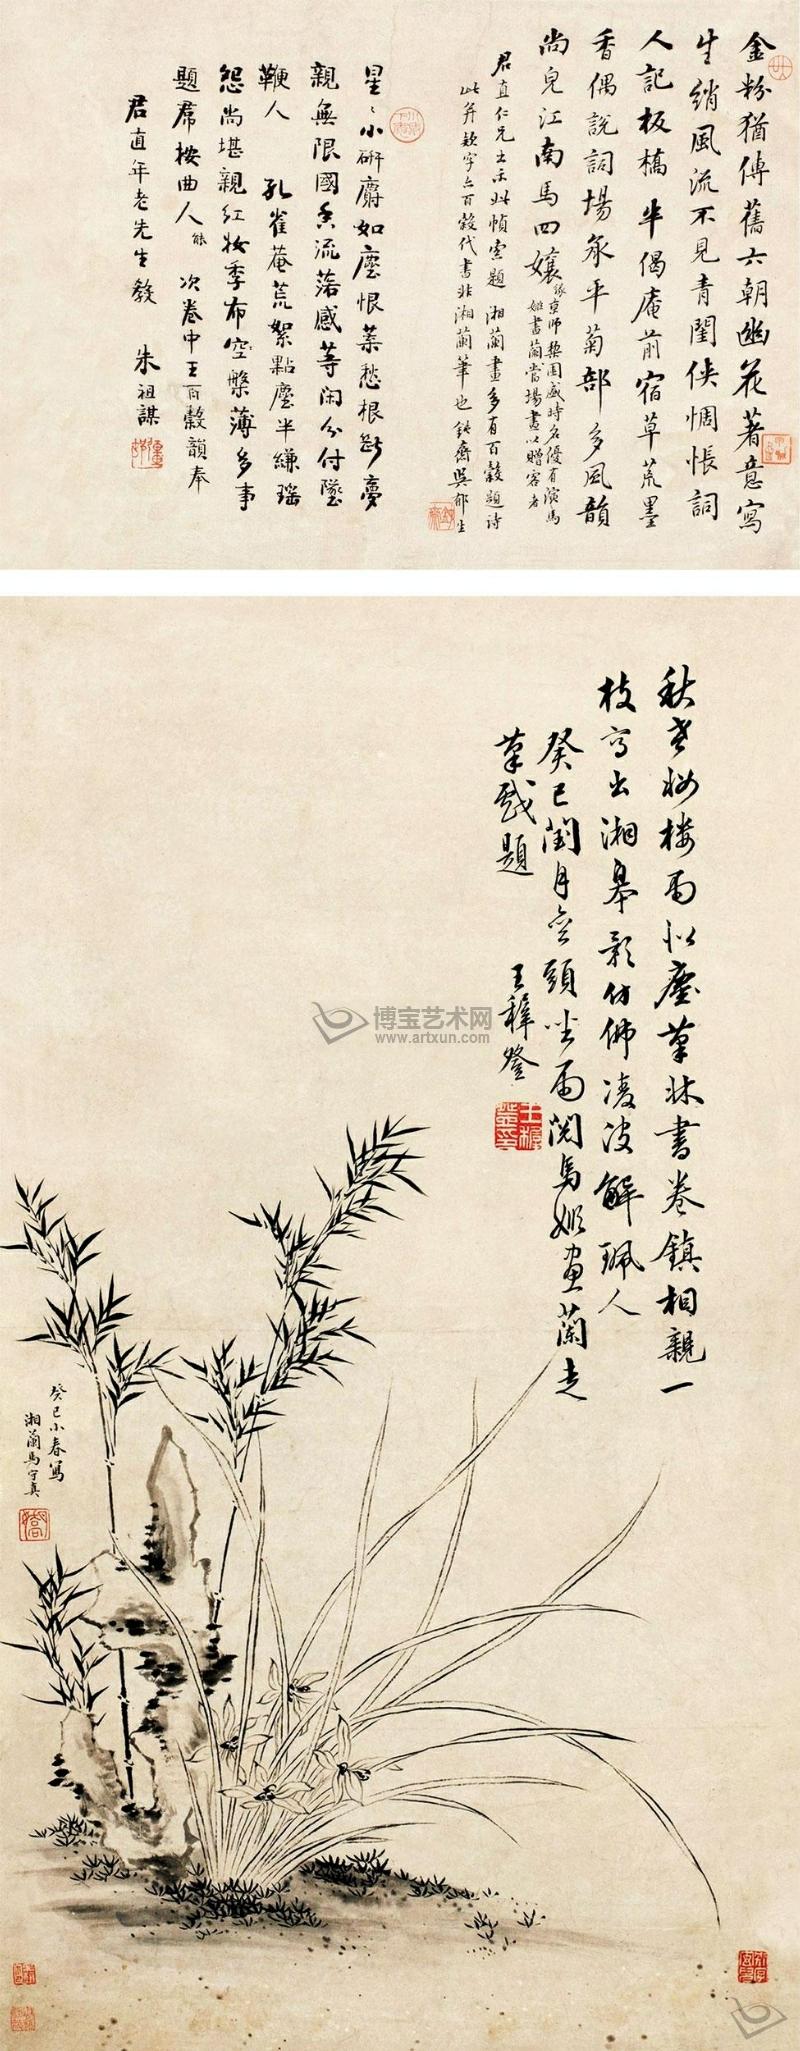 金粉猶傳舊六朝幽花著意寫
生綃風流不見青閨俠惆悵詞
人記板橋半偈庵前宿草荒墨
香偶說詞場永平菊部多風韻
尚兒江南馬四孃
京師梨園盛時名優有演馬
姬畫蘭當場畫以贈客者
君直仁兄出示此幀索題 湘蘭畫多有百穀題詩
此并款字亦百穀代書非湘蘭筆也 鈍齋吳郁生
星〻小研麝如塵恨葉愁根斷夢
親無限國香流落感等閑分付墜
鞭人 孔雀菴荒絮點塵半縑瑤
怨尚堪親紅妝季布空槃薄多事
題席按曲人 次卷中王百穀韻奉
君直年老先生教 朱祖謀
秋老妝樓雨似塵筆牀書卷鎮相親一
枝寫出湘皋影仿佛凌波解珮人
癸巳閏月頭坐雨閱馬姬畫蘭走
筆戲題 王穉登
王穉登印
癸巳小春寫
湘蘭馬守真
博宝艺术网
www.artxun.com